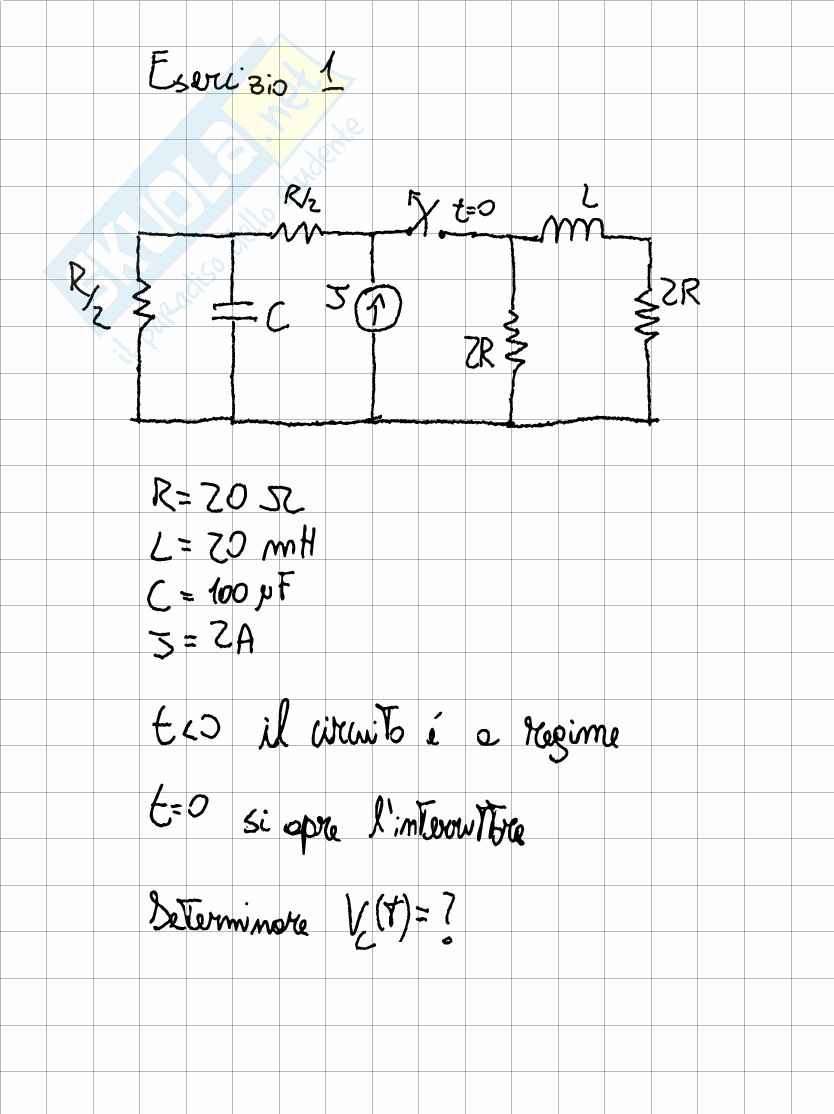 Esercizio 1
SKUOLA.net
il paradiso dello studente
R/2
t=0
L
R/2
C
J
2R
2R
R= 20 Ω
L= 20 mH
C= 100 μF
J= 2A
t<0 il circuito é a regime
t=0 si apre l'interruttore
Determinare Vc(t)=?